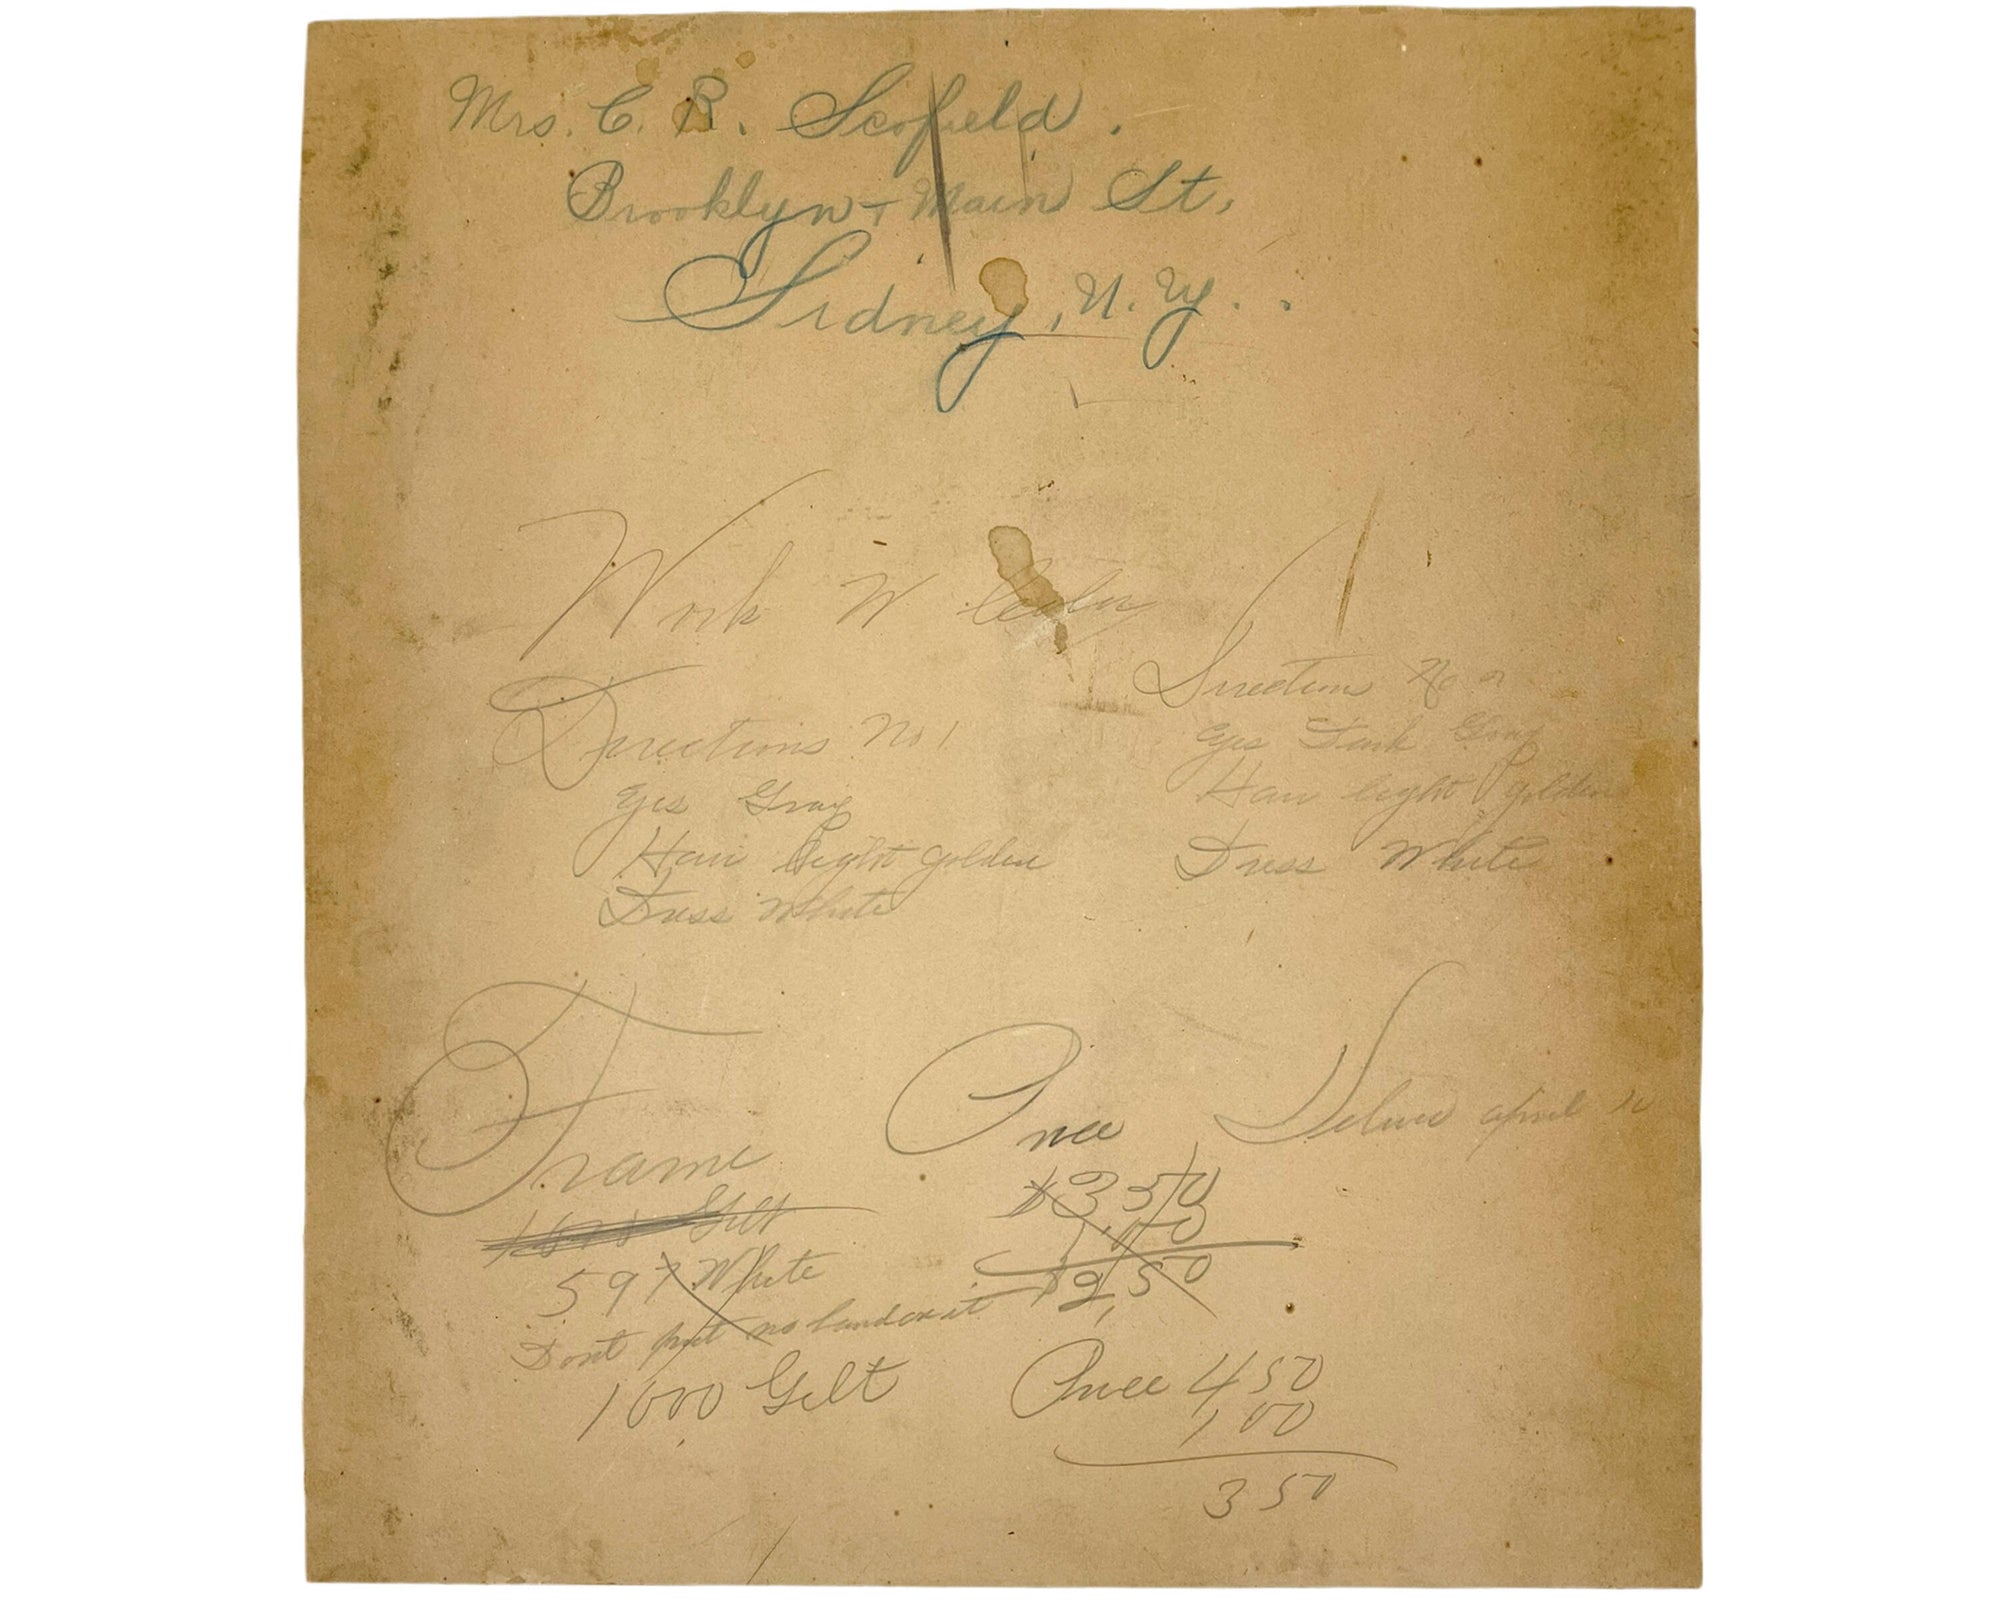 Mrs. C. R. Scofield.
Brooklyn + Main St.
Sidney, N. Y.
Work W Color
Directions No 1
Eyes Gray
Hair light golden
Dress White
Directions No 2
Eyes Dark Gray
Hair light golden
Dress White
Frame
Gilt
597 White
Dont put no
1000 Gilt
Price
$3 50
1,00
$2,50
Price 4 50
1 00
3 50
Deliver april